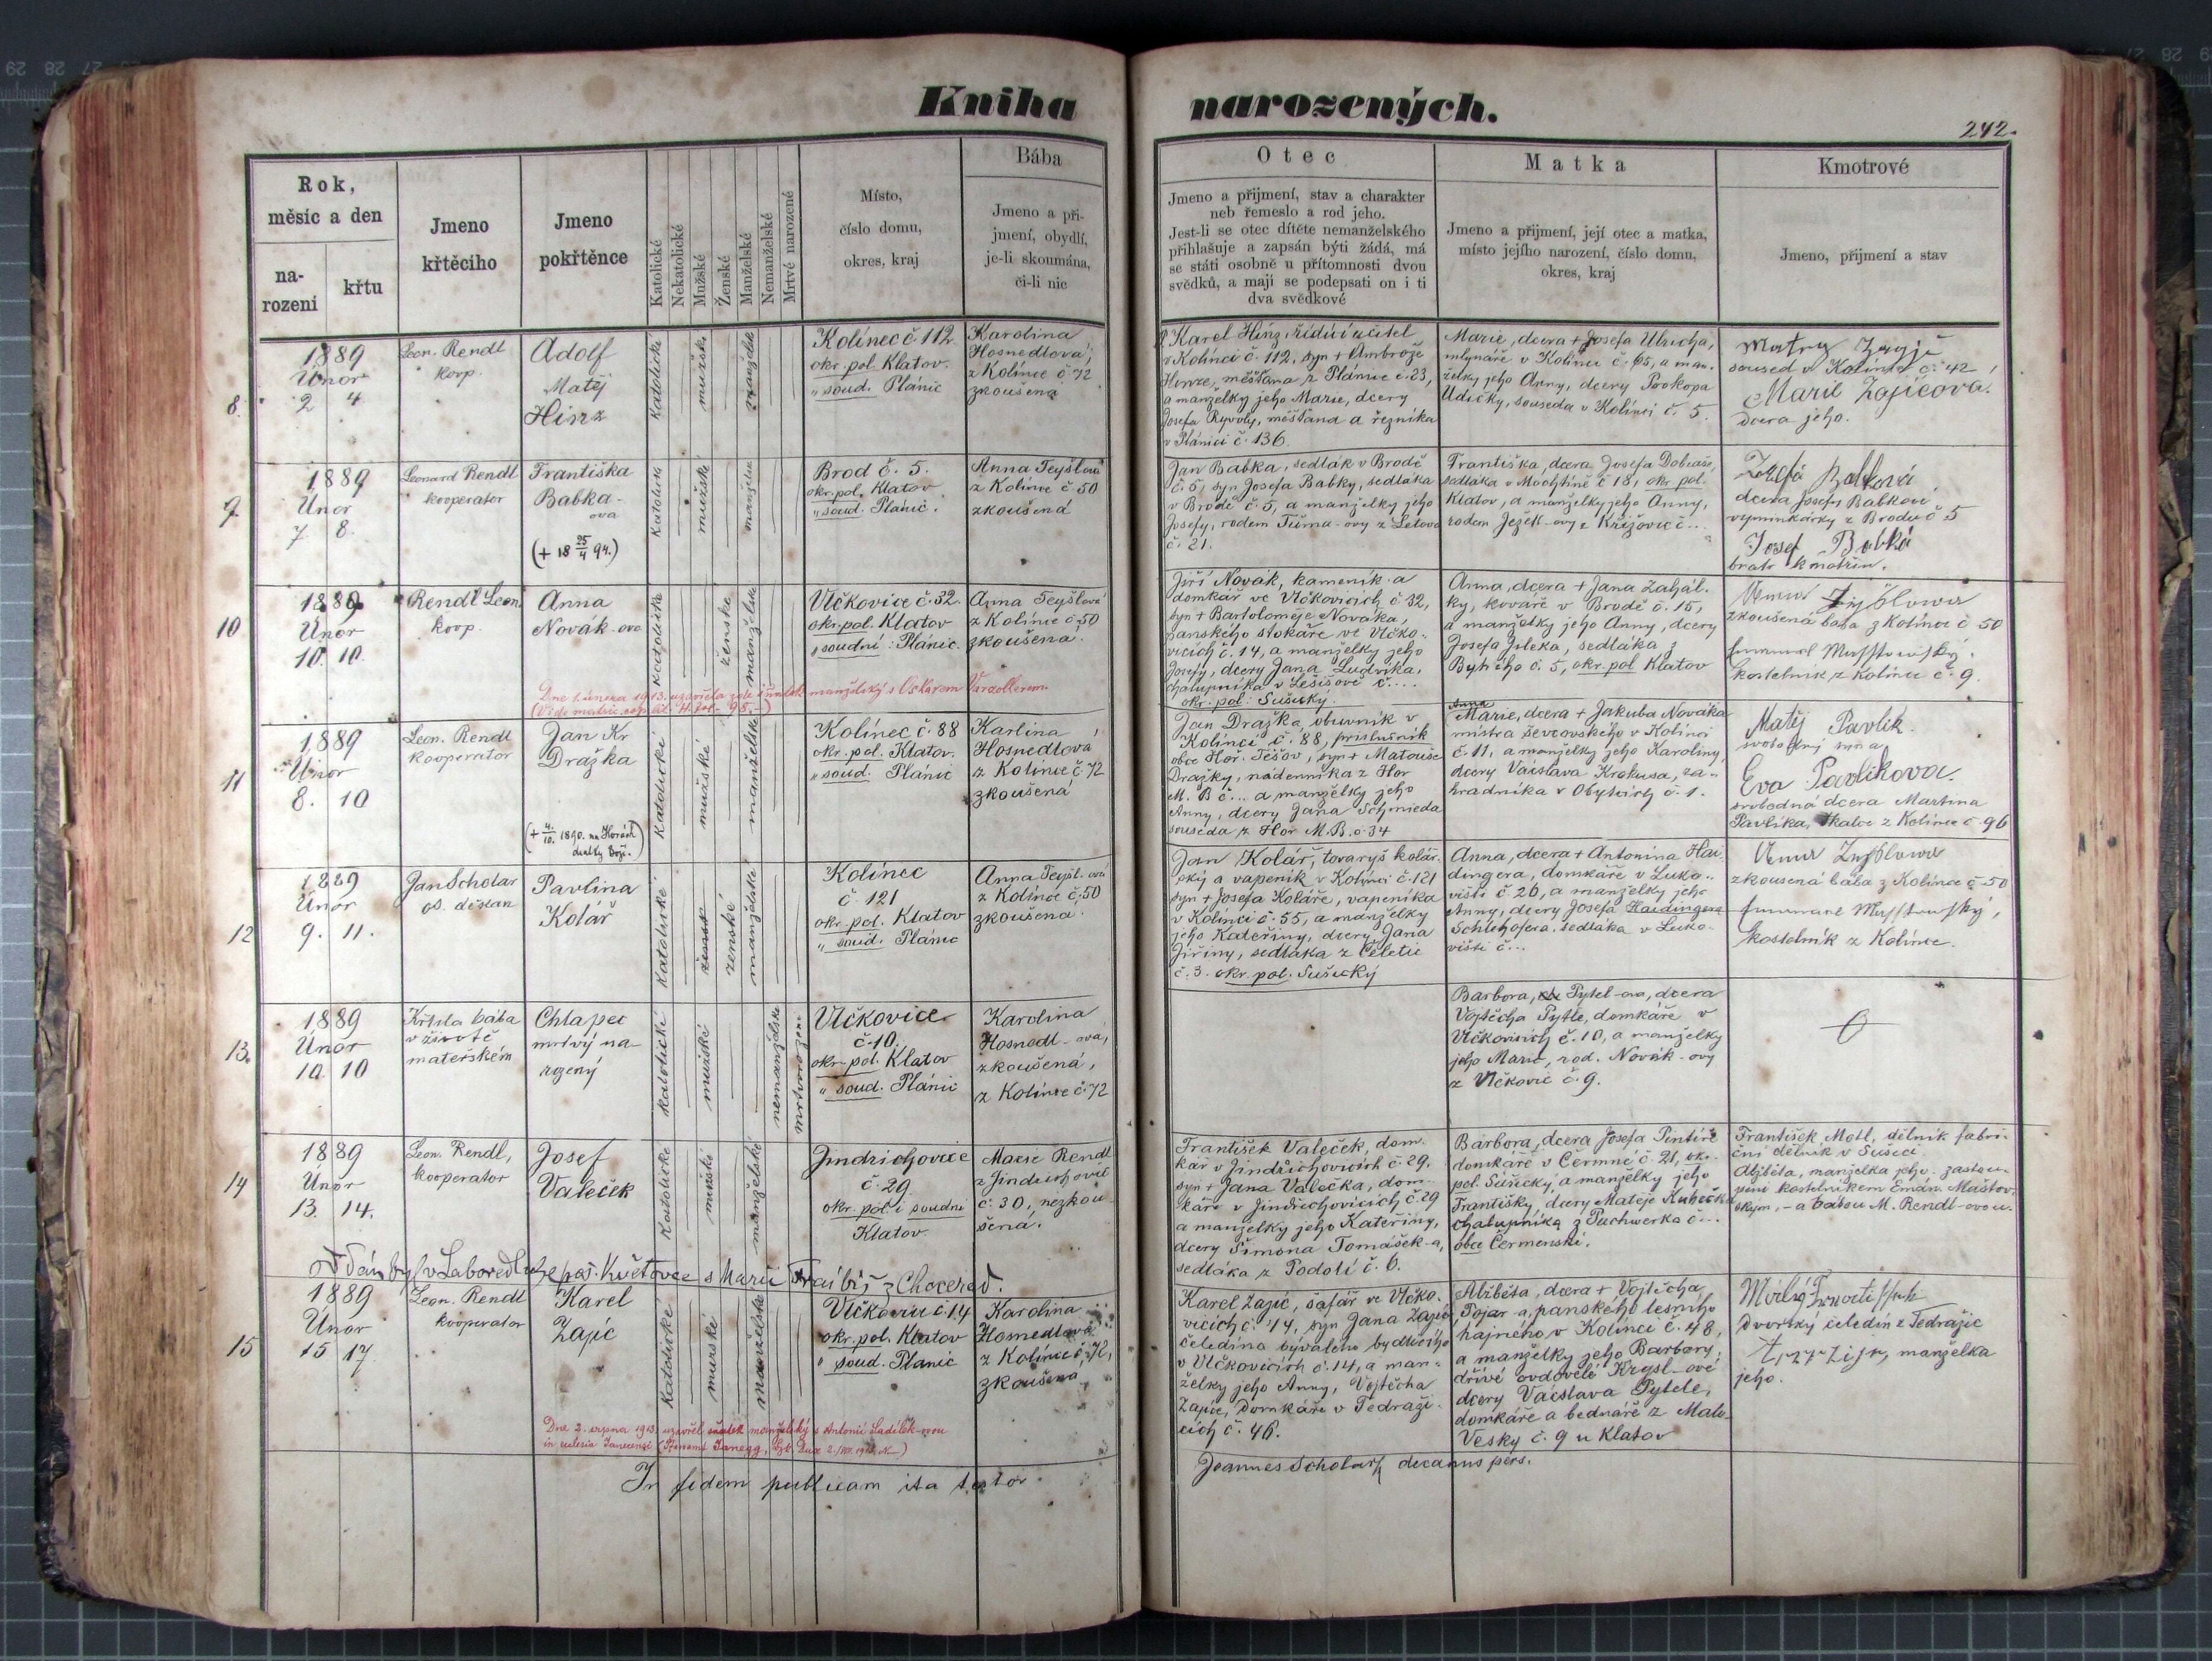 Kniha narozených.
242.
Rok,
měsíc a den
na-
rození
křtu
Jmeno
křtěcího
Jmeno
pokřtěnce
Katolické
Nekatolické
Mužské
Ženské
Manželské
Nemanželské
Mrtvě narozené
Místo,
číslo domu,
okres, kraj
Bába
Jmeno a při-
jmení, obydlí,
je-li skoumána,
či-li nic
Otec
Jmeno a přijmení, stav a charakter
neb řemeslo a rod jeho.
Jest-li se otec dítěte nemanželského
přihlašuje a zapsán býti žádá, má
se státi osobně u přítomnosti dvou
svědků, a mají se podepsati on i ti
dva svědkové
Matka
Jmeno a přijmení, její otec a matka,
místo jejího narození, číslo domu,
okres, kraj
Kmotrové
Jmeno, přijmení a stav
8.
1889
Únor
2 4
Leon. Rendl
koop.
Adolf
Matěj
Hinz
katolické
mužské
manželské
Kolínec č. 112
okr. pol. Klatov.
" soud. Plánic
Karolina
Hosnedlova,
z Kolince č 72
zkoušená
Karel Hinz řídící učitel
v Kolínci č. 112, syn + Ambrože
Hinze, měšťana z Plánice č. 23,
a manželky jeho Marie, dcery
Josefa Ryvoly, měšťana a řezníka
v Plánici č. 136.
Marie, dcera + Josefa Ulricha,
mlynáře v Kolínci č. 65, a man-
želky jeho Anny, dcery Prokopa
Udičky, souseda v Kolínci č. 5.
soused v Kolínci č. 42,
Marie Zajícova.
dcera jeho.
9.
1889
Únor
7. 8.
Leonard Rendl
kooperator
Františka
Babka-
ova
(+ 18 25/4 94.)
katolické
mužské
manželské
Brod č. 5.
okr. pol. Klatov
" soud. Plánič.
Anna Teyšlova
z Kolínce č. 50
zkoušená
Jan Babka, sedlák v Brodě
č. 5, syn Josefa Babky, sedláka
v Brodě č. 5, a manželky jeho
Josefy, rodem Tůma-ovy z Letova
č. 21.
Františka, dcera Josefa
sedláka v Mochtíně č 18, okr. pol.
Klatov, a manželky jeho Anny,
rodem Ježek-ovy z Křižovic č...
Babková
dcera Josefy Babkové
výminkářky z Brodu č 5
Josef Babka
bratr kmotřin.
10
1889
Únor
10. 10.
Rendl Leon
koop.
Anna
Novák-ova
katolické
ženské
manželské
Vlčkovice č. 32.
okr. pol. Klatov
" soudní: Plánic.
Anna Teyšlova
z Kolínce č. 50
zkoušená.
Jiří Novák, kameník a
domkář ve Vlčkovicích č 32,
syn + Bartoloměje Nováka,
panského slokaře ve Vlčko-
vicích č. 14, a manželky jeho
Josefy, dcery Jana Ludvíka,
chalupníka v Lešišově č....
okr. pol. Sušický.
Anna, dcera + Jana Zahál-
ky, kováře v Brodě č. 15,
a manželky jeho Anny, dcery
Josefa Jíleka, sedláka z
č. 5, okr. pol Klatov
zkoušená bába z Kolince č 50
kostelník z Kolince č. 9.
Dne 1. února 1913. uzavřela zde sňatek manželský s Oskarem
11
1889
Únor
8. 10
Leon. Rendl
kooperator
Jan Kr
Dražka
(+ 4./10. 1890. na Horách
matky Boží.)
katolické
mužské
manželské
Kolínec č. 88
okr. pol. Klatov.
" soud. Plánic
Karlina
Hosnedlova,
z Kolince č. 72
zkoušená
Jan Dražka, obuvník v
Kolínci č. 88, příslušník
obce Hoř. Těšov, syn + Matouše
Dražky, nádenníka z Hor
M. B č... a manželky jeho
Anny, dcery Jana Schmieda
souseda z Hor M. B. č 34
Anna
Marie, dcera + Jakuba Nováka
mistra ševcovského v Kolínci
č. 11, a manželky jeho Karoliny,
dcery Václava Krokusa, za-
hradníka v Obytcích č. 1.
Matěj Pavlík
Eva Pavlíkova.
svobodná dcera Martina
Pavlíka, tkalce z Kolince č. 96
12
1889
Únor
9. 11.
Jan Scholar
os. děkan
Pavlina
Kolář
katolické
ženské
manželské
Kolínec
č. 121
okr. pol. Klatov
" soud. Plánic
Anna Teyšl-ová
z Kolínce č. 50
zkoušena.
Jan Kolář, tovaryš kolář-
ský a vápeník v Kolínci č. 121
syn + Josefa Koláře, vápeníka
v Kolínci č. 55, a manželky
jeho Kateřiny, dcery Jana
Jiřiny, sedláka z Čeletic
č. 3. okr. pol. Sušický
Anna, dcera + Antonína Hai-
dingera, domkáře v Luko-
višti č. 26, a manželky jeho
Anny, dcery Josefa Haidingera
Schlehofera, sedláka v Luko-
višti č...
zkoušená bába z Kolínce č 50
kostelník z Kolince.
13.
1889
Únor
10. 10
Křtila bába
v životě
mateřském
Chlapec
mrtvý na-
rozený
katolické
mužské
nemanželské
mrtvorozené
Vlčkovice
č. 10.
okr. pol. Klatov
" soud. Plánic
Karolina
Hosnedl-ová,
zkoušená,
z Kolince č. 72
Barbora, Pytel-ova, dcera
Vojtěcha Pytle, domkáře v
Vlčkovicích č. 10, a manželky
jeho Marie, rod. Novák-ovy
z Vlčkovic č. 9.
14
1889
Únor
13. 14.
Leon. Rendl,
kooperator
Josef
Valeček
katolické
mužské
manželské
Jindrichovice
č. 29
okr. pol. i soudní
Klatov.
Marie Rendl
z Jindrichovic
č. 30, nezkou-
šená.
František Valeček, dom-
kář v Jindřichovicích č. 29,
syn + Jana Valečka, dom-
káře v Jindřichovicích č. 29
a manželky jeho Kateřiny,
dcery Šimona Tomášek-a,
sedláka z Podolí č. 6.
Barbora, dcera Josefa Pintíře
domkáře v Čermné č. 21, okr.
pol. Sušický, a manželky jeho
Františky, dcery Matěje Kubečka
chalupníka z Puchwerka č...
obce Čermenské.
František Motl, dělník fabri-
ční dělník v Sušici
Alžběta, manželka jeho. zastou-
peni kostelníkem Emán. Maštov-
ským, - a bábou M. Rendl-ovou.
s Marií z Chocerad.
15
1889
Únor
15 17
Leon. Rendl
kooperator
Karel
Zajíc
katolické
mužské
manželské
Vlčkovic č. 14
okr. pol. Klatov
" soud. Planic
Karolina
Hosnedlova
z Kolince č. 72,
zkoušena
Karel Zajíc, šafář ve Vlčko-
vicích č. 14, syn Jana Zajíce
čeledína bývalého bydlícího
v Vlčkovicích č. 14, a man-
želky jeho Anny, Vojtěcha
Zajíce, domkáře v Tedraži-
cích č. 46.
Alžběta, dcera + Vojtěcha
Pojar-a, panského lesního
hajného v Kolínci č. 48,
a manželky jeho Barbory,
dříve ovdovělé Krysl-ové
dcery Václava Pytele,
domkáře a bednáře z Malo-
Vesky č. 9 u Klatov
Dvorský čeledín z Tedražic
manželka
jeho.
Dne 2. srpna 1913. uzavřel sňatek manželský s Antonií Ladílek-ovou
In fidem publicam ita testor
Joannes Scholarž decanus pers.